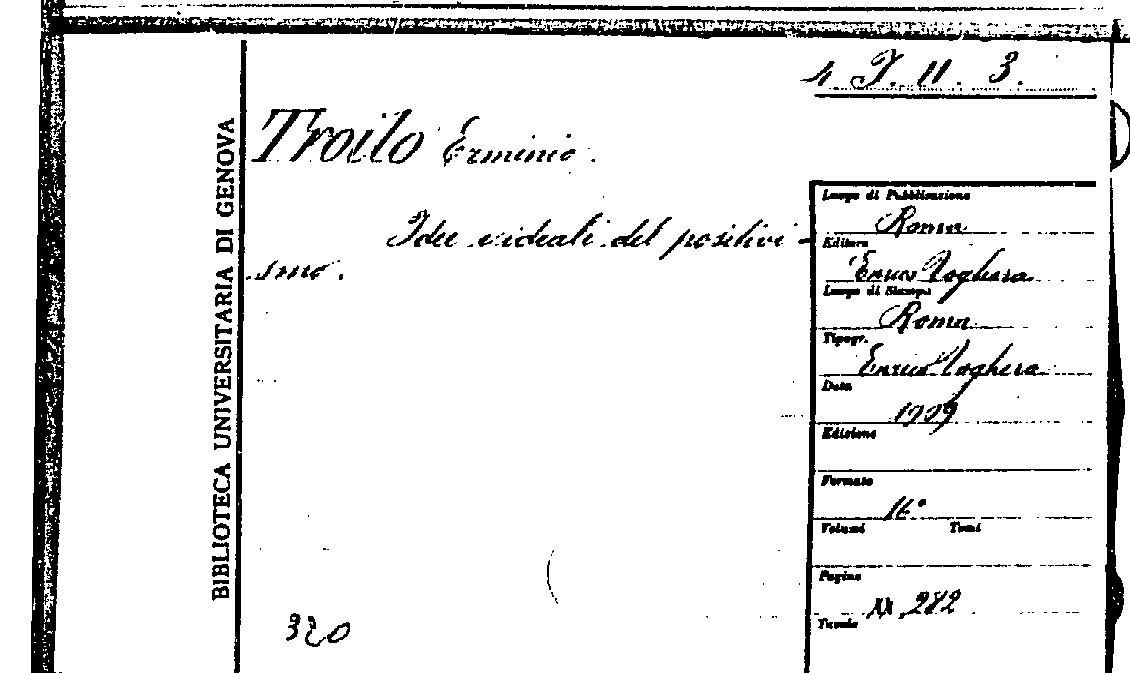 4 T. 11. 3.
BIBLIOTECA UNIVERSITARIA DI GENOVA
Troilo Erminio.
Idee e ideali del positivi-
smo.
Luogo di Pubblicazione
Roma
Editore
Enrico Voghera
Luogo di Stampa
Roma
Tipogr.
Enrico Voghera
Data
1909
Edizione
Formato
16°
Volumi Tomi
Pagine
282
Tavole
320